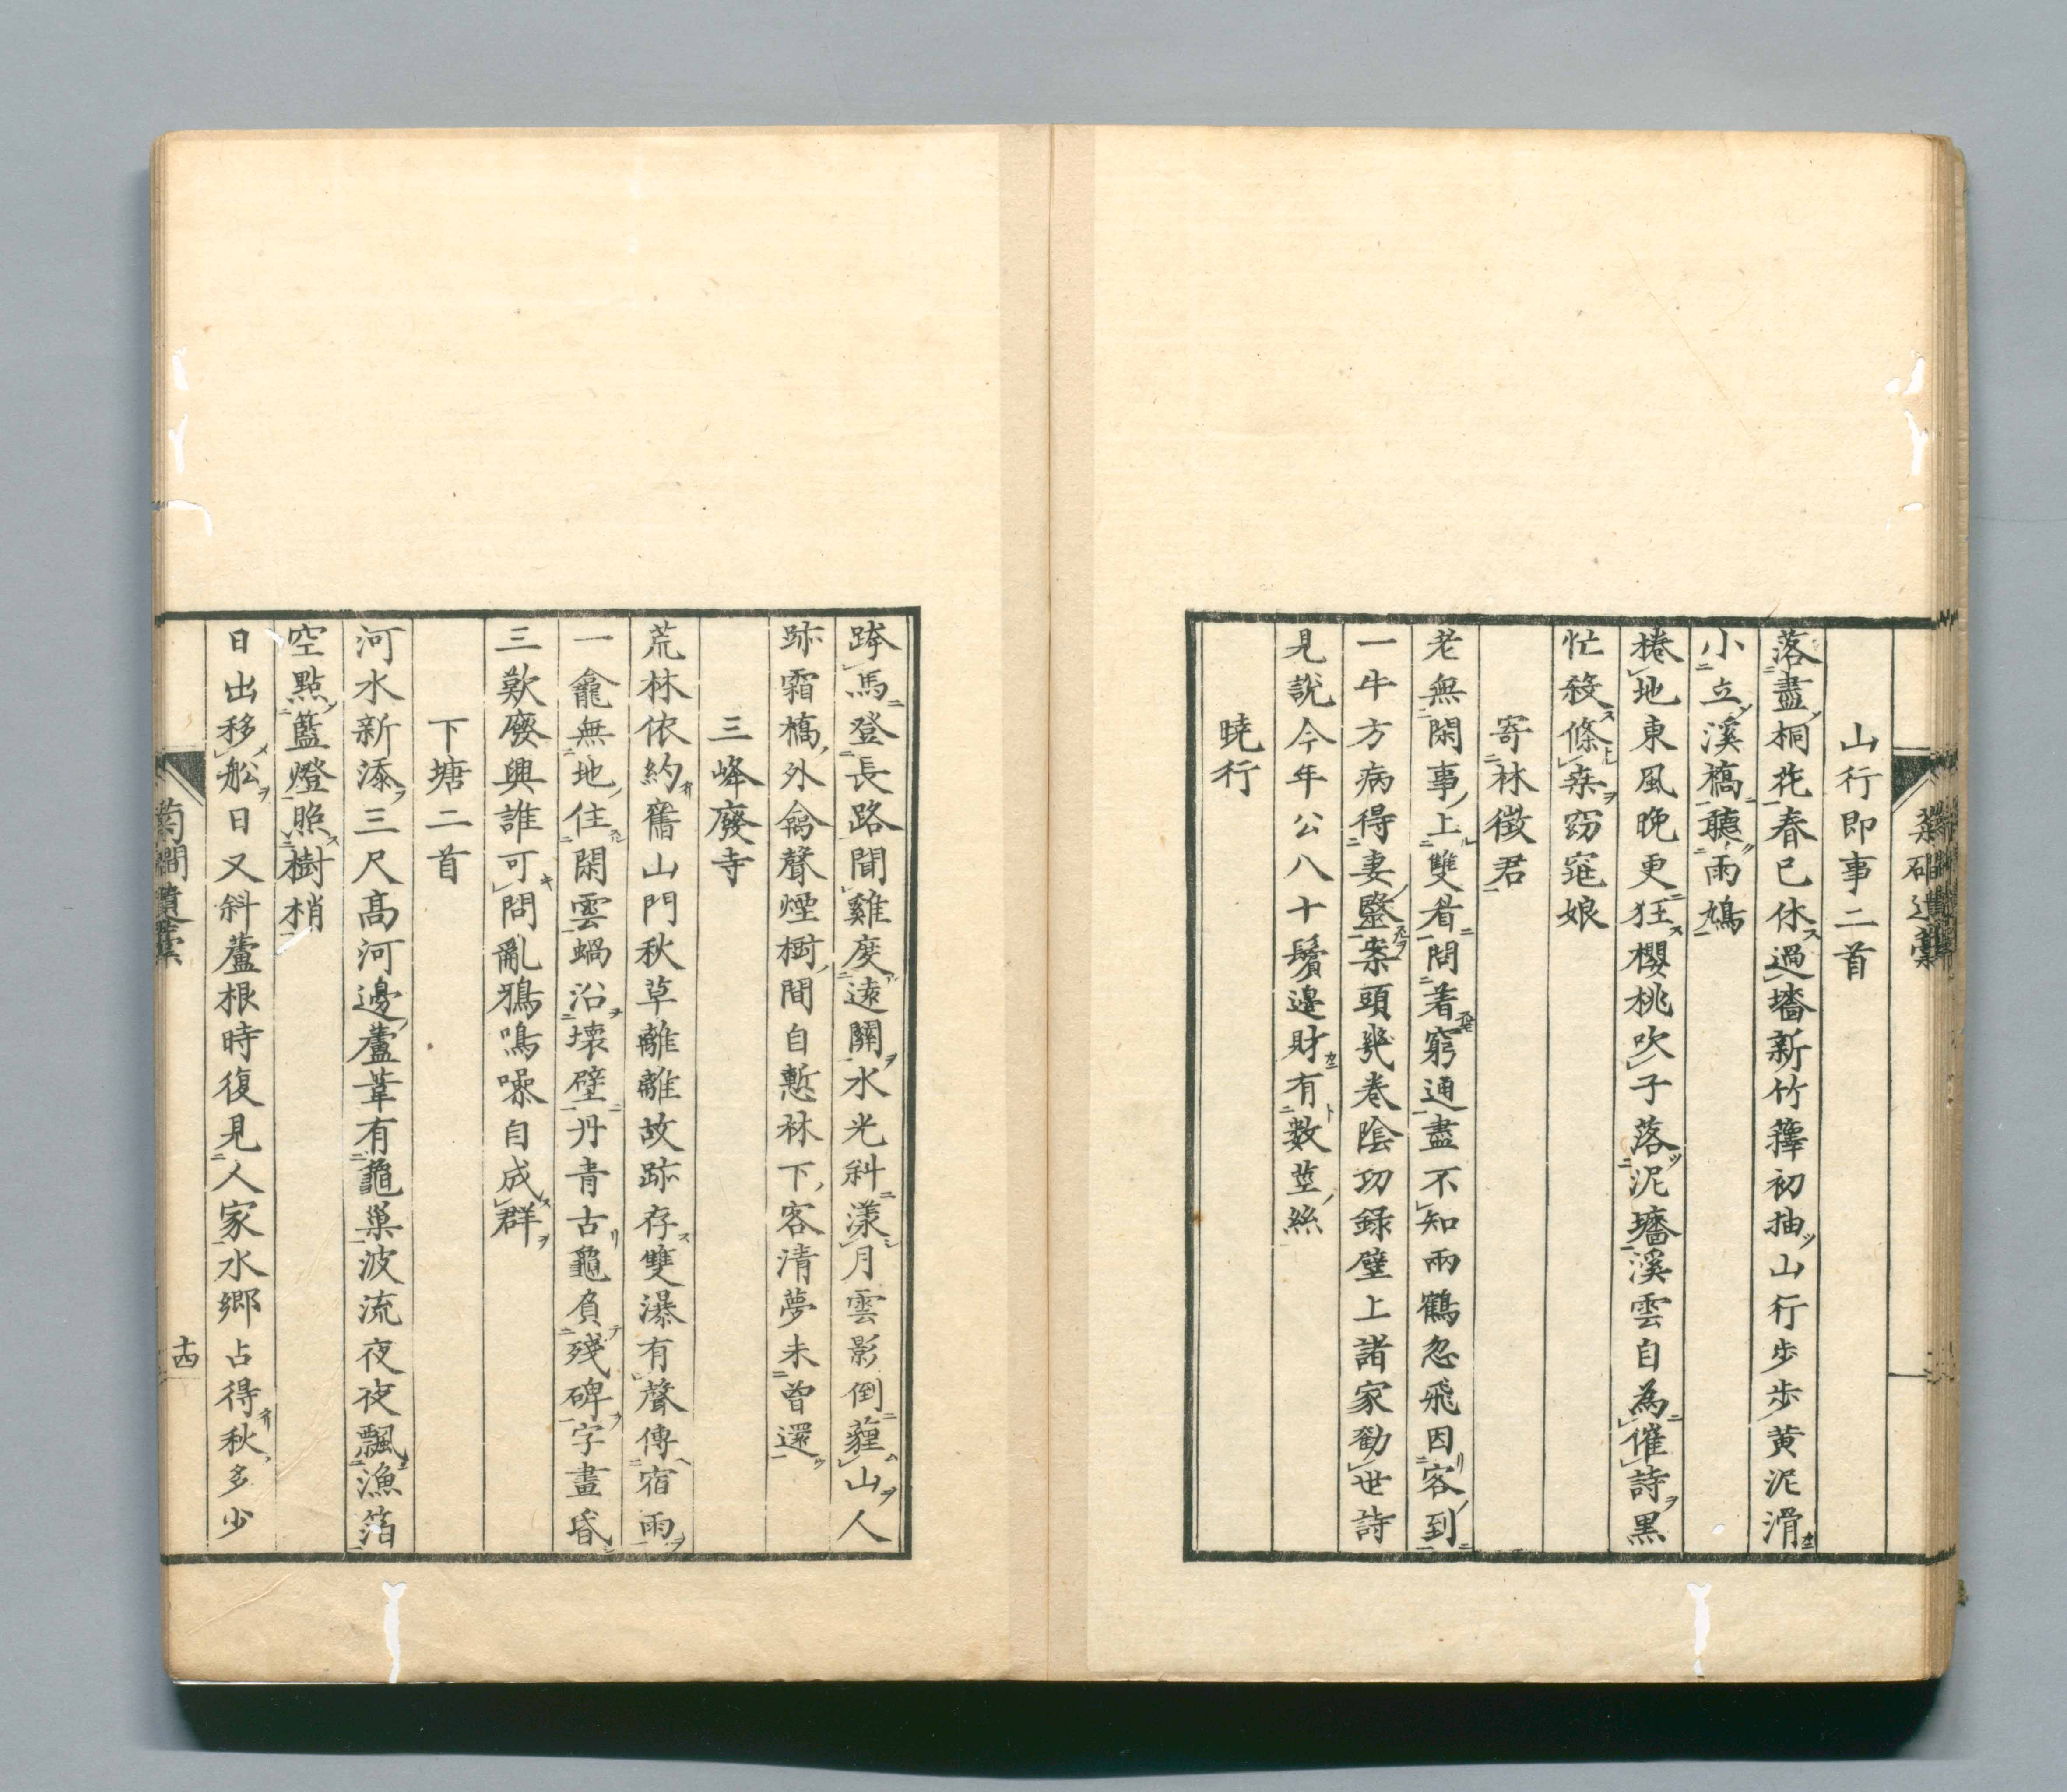 山行即事二首
落盡桐花春已休過墻新竹籜初抽山行步步黄泥滑
小立溪橋聽雨鳩
捲地東風晩更狂櫻桃吹子落泥墻溪雲自為催詩黒
忙殺條桒窈窕娘
寄林徴君
老無閑事上雙眉問着窮通盡不知兩鶴忽飛因客到
一牛方病得妻毉案頭幾卷陰功録壁上諸家勸世詩
見説今年公八十鬢邉財有數莖絲
暁行
跨馬登長路聞雞度遠關水光斜漾月雲影倒薶山人
跡霜橋外禽聲煙樹間自慙林下客清夢未曾還
三峰廢寺
荒林依約舊山門秋草離離故跡存雙瀑有聲傳宿雨
一龕無地住閑雲蝸沿壊壁丹青古龜負殘碑字畫昏
三歎廢興誰可問亂鴉鳴噪自成群
下塘二首
河水新添三尺髙河邊蘆葦有龜巢波流夜夜飄漁箔
空點籃燈照樹梢
日出移舩日又斜蘆根時復見人家水郷占得秋多少
菊磵遺藁
十四